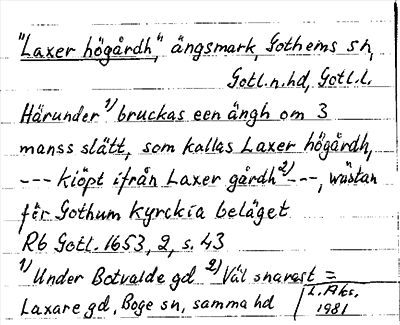 "Laxer högårdh", ängsmark, Gothems sn,
Gotl.n.hd, Gotl.l.
Härunder 1) bruckas een ängh om 3
manss slätt, som kallas Laxer högårdh,
--- kiöpt ifrån Laxer gårdh 2) ---, wästan
för Gothum kyrckia beläget
Rb Gotl. 1653, 2, s. 43
1) Under Botvalde gd 2) Väl snarast =
Laxare gd, Boge sn, samma hd
L. Aks.
1981